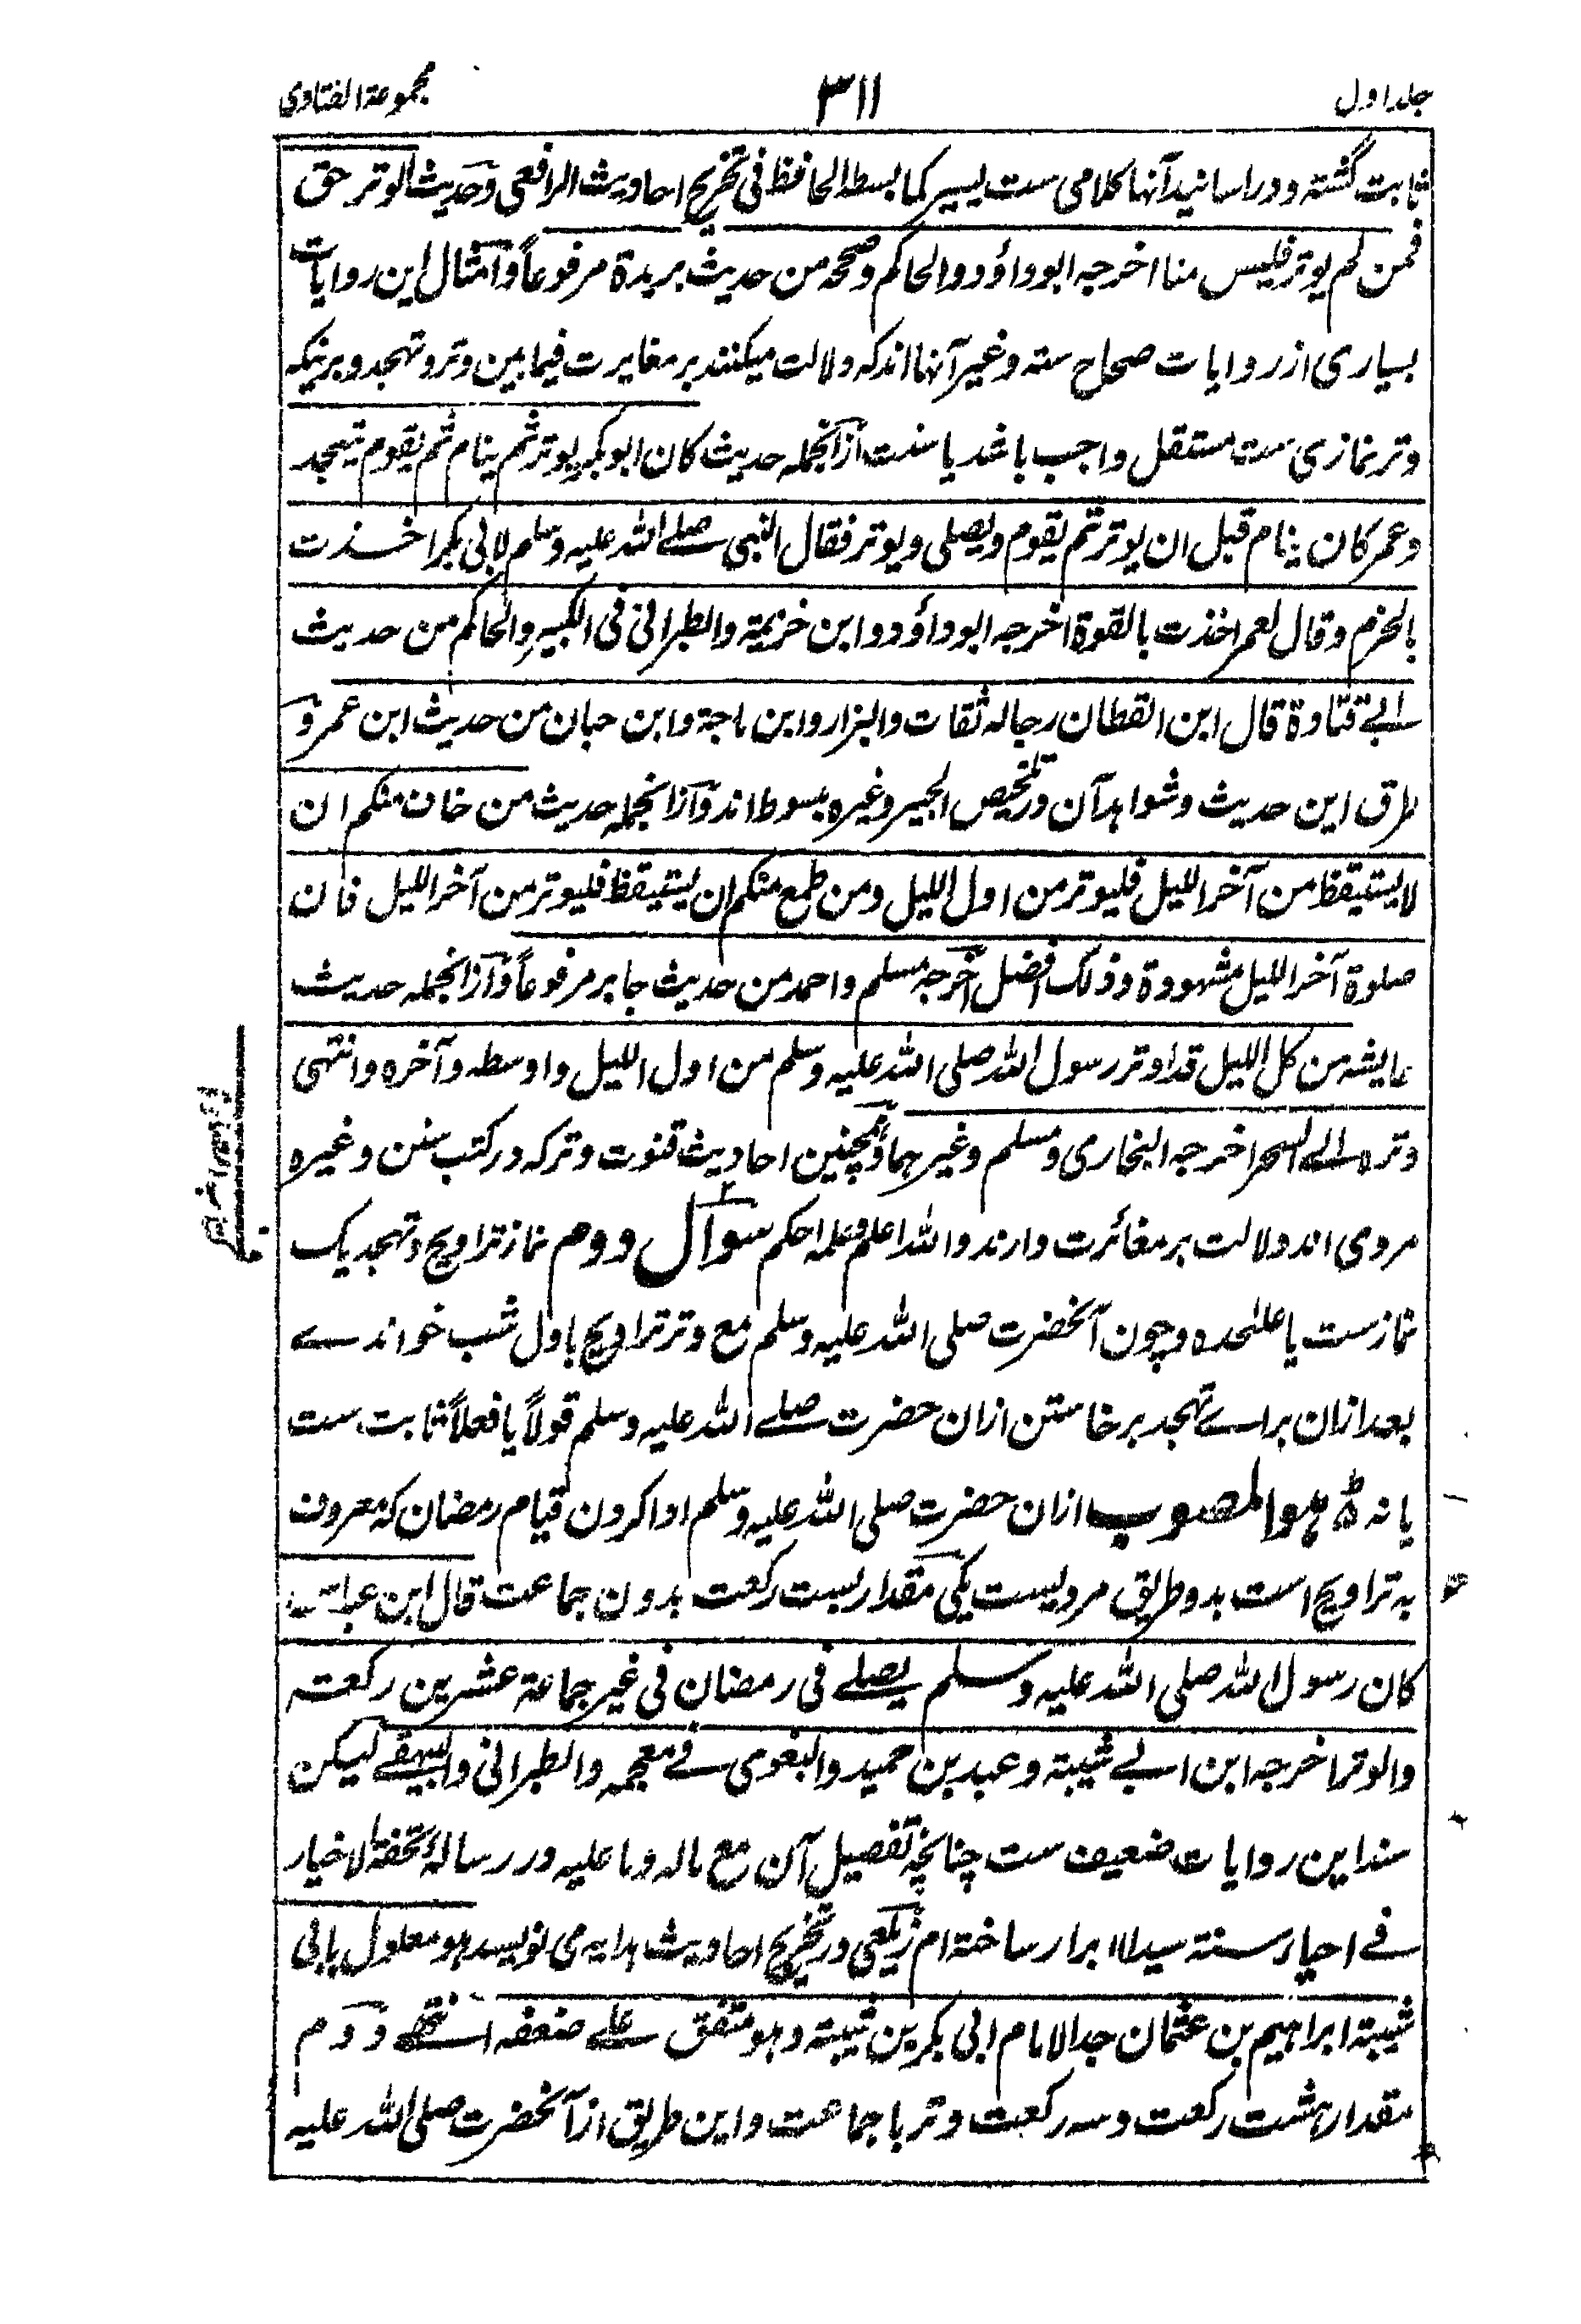 جلد اول
۳۱۱
مجموعة الفتاوی
ثابت گشته و در اسانید آنها کلامی ست یسیر کما بسطه الحافظ فی تخریج احادیث الرافعی و حدیث الوتر حق
فمن لم یوتر فلیس منا اخرجه ابو داؤد و الحاکم و صححه من حدیث بریدة مرفوعاً و امثال این روایات
بسیاری از روایات صحاح سته و غیر آنها اند که دلالت میکنند بر مغایرت فیما بین وتر و تهجد و برنیکه
وتر نمازی ست مستقل واجب باشد یا سنت ازانجمله حدیث کان ابو بکر یوتر ثم ینام ثم یقوم یتهجد
و عمر کان ینام قبل ان یوتر ثم یقوم و یصلی و یوتر فقال النبی صلے اللہ علیه وسلم لابی بکر اخذت
بالحزم و قال لعمر اخذت بالقوة اخرجه ابو داؤد و ابن خزیمة والطبرانی فی الکبیر والحاکم من حدیث
ابے قتادة قال ابن القطان رجاله ثقات والبزار و ابن ماجة و ابن حبان من حدیث ابن عمر و
طرق این حدیث و شواهد آن در تلخیص الحبیر و غیره مبسوط اند و ازانجمله حدیث من خاف منکم ان
لا یستیقظ من آخر اللیل فلیوتر من اول اللیل و من طمع منکم ان یستیقظ فلیوتر من آخر اللیل فان
صلوة آخر اللیل مشهودة و ذلک افضل اخرجه مسلم و احمد من حدیث جابر مرفوعاً و ازانجمله حدیث
عایشه من کل اللیل قد اوتر رسول اللہ صلی اللہ علیه وسلم من اول اللیل و اوسطه و آخره و انتهی
وتره الے السحر اخرجه البخاری و مسلم و غیرهما و همچنین احادیث قنوت وتر که در کتب سنن و غیره
مروی اند دلالت بر مغائرت دارند واللہ اعلم و علمه احکم سوال دوم نماز تراویح و تهجد یک
نمازست یا علٰحده و چون آنحضرت صلی اللہ علیه وسلم مع وتر تراویح باول شب خواندے
بعد ازان براے تهجد برخاستن ازان حضرت صلے اللہ علیه وسلم قولاً یا فعلاً ثابت ست
یا نه هو المصوب ازان حضرت صلی اللہ علیه وسلم ادا کردن قیام رمضان که معروف
به تراویح است بدو طریق مرویست یکی مقدار بست رکعت بدون جماعت قال ابن عباس
کان رسول اللہ صلی اللہ علیه وسلم یصلے فی رمضان فی غیر جماعة عشرین رکعة
والوتر اخرجه ابن ابے شیبة و عبد بن حمید والبغوی فے معجمه والطبرانی والبیهقے لیکن
سند این روایات ضعیف ست چنانچه تفصیل آن مع ماله و ما علیه در رسالهٔ تحفة الاخیار
فے احیاء سنة سید الابرار ساخته ام زیلعی در تخریج احادیث هدایه می نویسد هو معلول بابی
شیبة ابراهیم بن عثمان جد الامام ابی بکر بن شیبة و هو متفق علے ضعفه انتهے دوم
مقدار هشت رکعت و سه رکعت وتر با جماعت و این طریق از آنحضرت صلی اللہ علیه